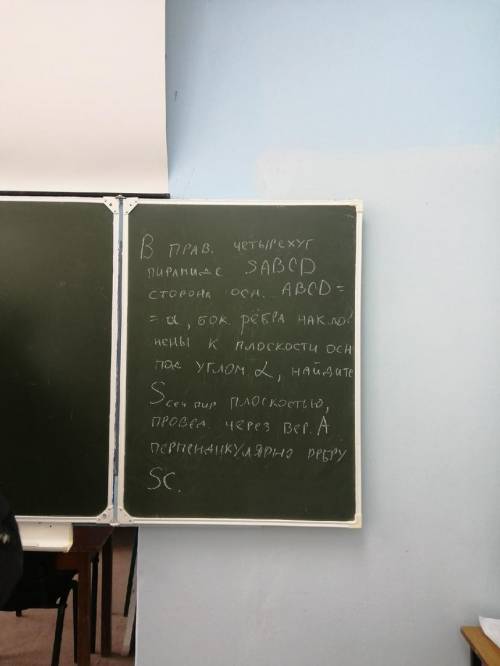 В прав. четырехуг
пирамиде SABCD
сторона осн. ABCD =
= a, бок. ребра накло
нены к плоскости осн
под углом α, найдите
S сеч пир плоскостью,
провед через вер. A
перпендикулярно ребру
SC.